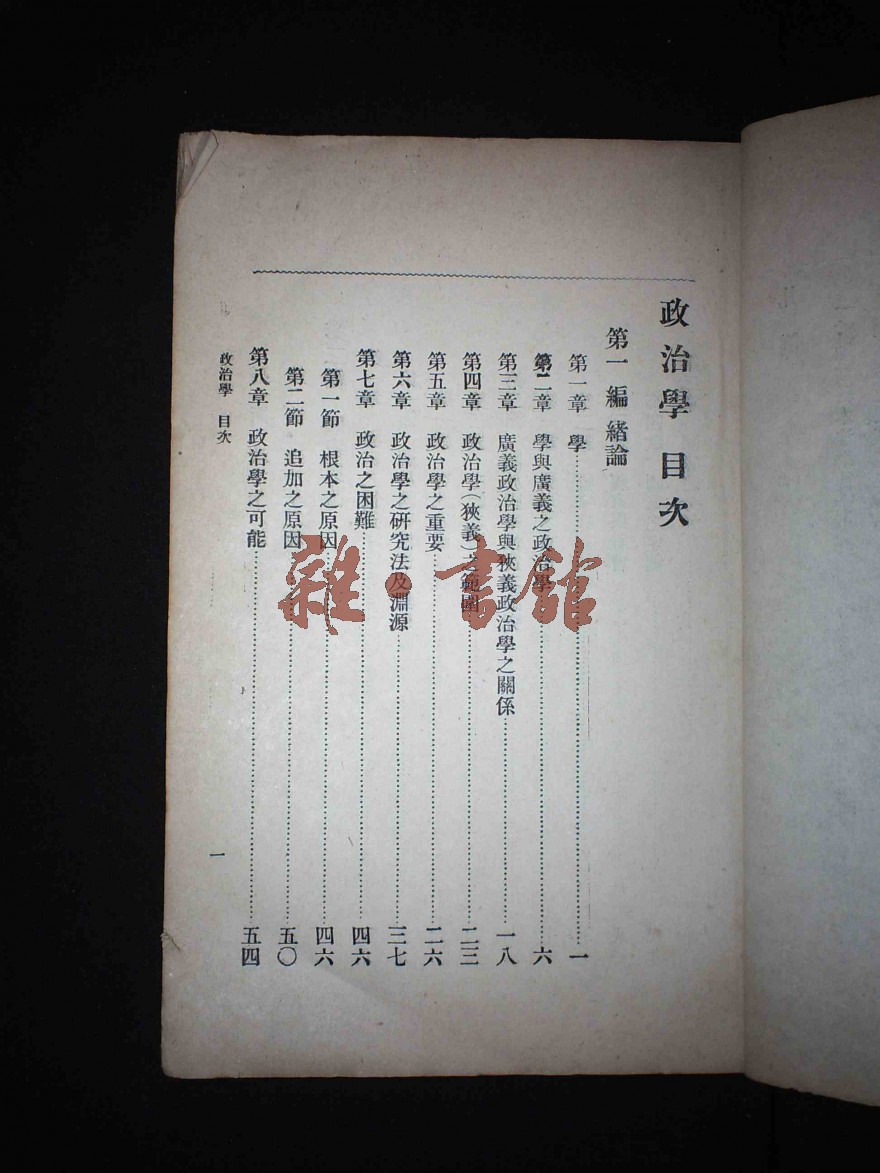 政治學 目次
第一編 緒論
第一章 學……一
第二章 學與廣義之政治學……六
第三章 廣義政治學與狹義政治學之關係……一八
第四章 政治學(狹義)之範圍……二三
第五章 政治學之重要……二六
第六章 政治學之研究法及淵源……三七
第七章 政治之困難……四六
第一節 根本之原因……四六
第二節 追加之原因……五〇
第八章 政治學之可能……五四
政治學 目次
一
雜·書館